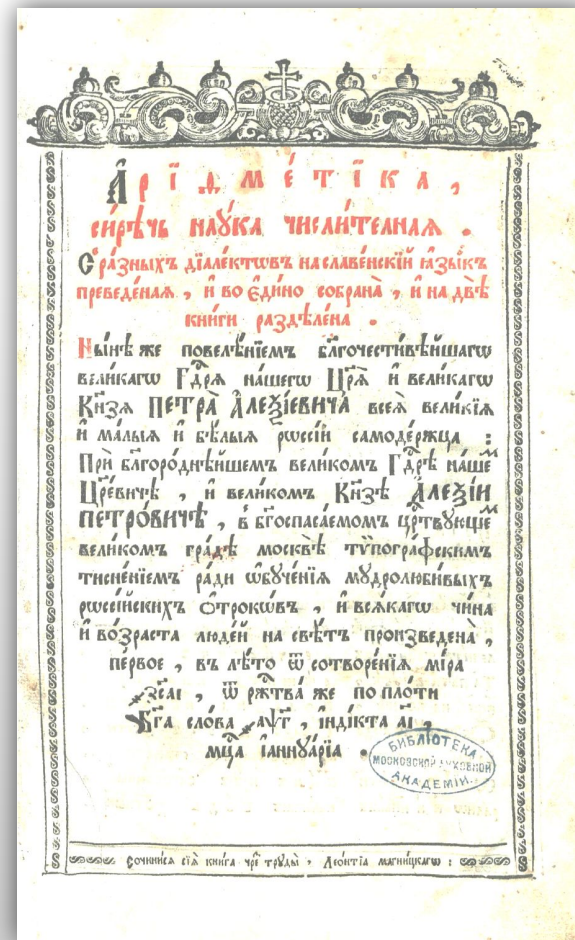 А҆ріѳме́тїка,
си́рѣчь нау́ка числи́телная.
С̾ ра́зныхъ дїале́ктѡвъ на славе́нскїй ꙗ҆зы́къ
преведе́ная, и҆ во є҆ди́но собрана̀, и҆ на двѣ̀
кни́ги раздѣле́на.
Ны́нѣ же повелѣ́нїемъ бл҃гочести́вѣйшагѡ
вели́кагѡ Гд҃рѧ на́шегѡ Цр҃ѧ̀ и҆ вели́кагѡ
Кн҃зѧ ПЕТРА̀ А҆ЛЕѮі́ЕВИЧА всеѧ̀ вели́кїѧ
и҆ ма́лыѧ и҆ бѣ́лыѧ рѡссі́и самоде́ржца :
Прѝ бл҃горо́днѣйшемъ вели́комъ Гд҃рѣ на́шеⷨ
Цр҃е́вичѣ, и҆ вели́комъ Кн҃зѣ А҆ЛЕѮі́И
ПЕТРО́ВИЧѢ, в̾ бг҃оспаса́емомъ цр҃твꙋ́ющеⷨ
вели́комъ гра́дѣ москвѣ̀ тѷпогра́фскимъ
тисне́нїемъ ра́ди ѡ҆бꙋче́нїѧ мꙋдролюби́выхъ
рѡссі́йскихъ ѻ҆́трокѡвъ, и҆ всѧ́кагѡ чи́на
и҆ во́зраста люде́й на свѣ́тъ произведена̀,
пе́рвое, въ лѣ́то ѿ сотворе́нїѧ мі́ра
҂зс҃аі, ѿ рж҃тва́ же по пло́ти
Бг҃а сло́ва ҂аѱ҃г, і҆нді́кта а҃і,
мц҃а і҆аннꙋа́рїа.
БИБЛІОТЕКА
МОСКОВСКОЙ ДУХОВНОЙ
АКАДЕМІИ.
Сочини́сѧ сїѧ̀ кни́га чре́з трꙋды̀, Лео́нтїа магни́цкагѡ :